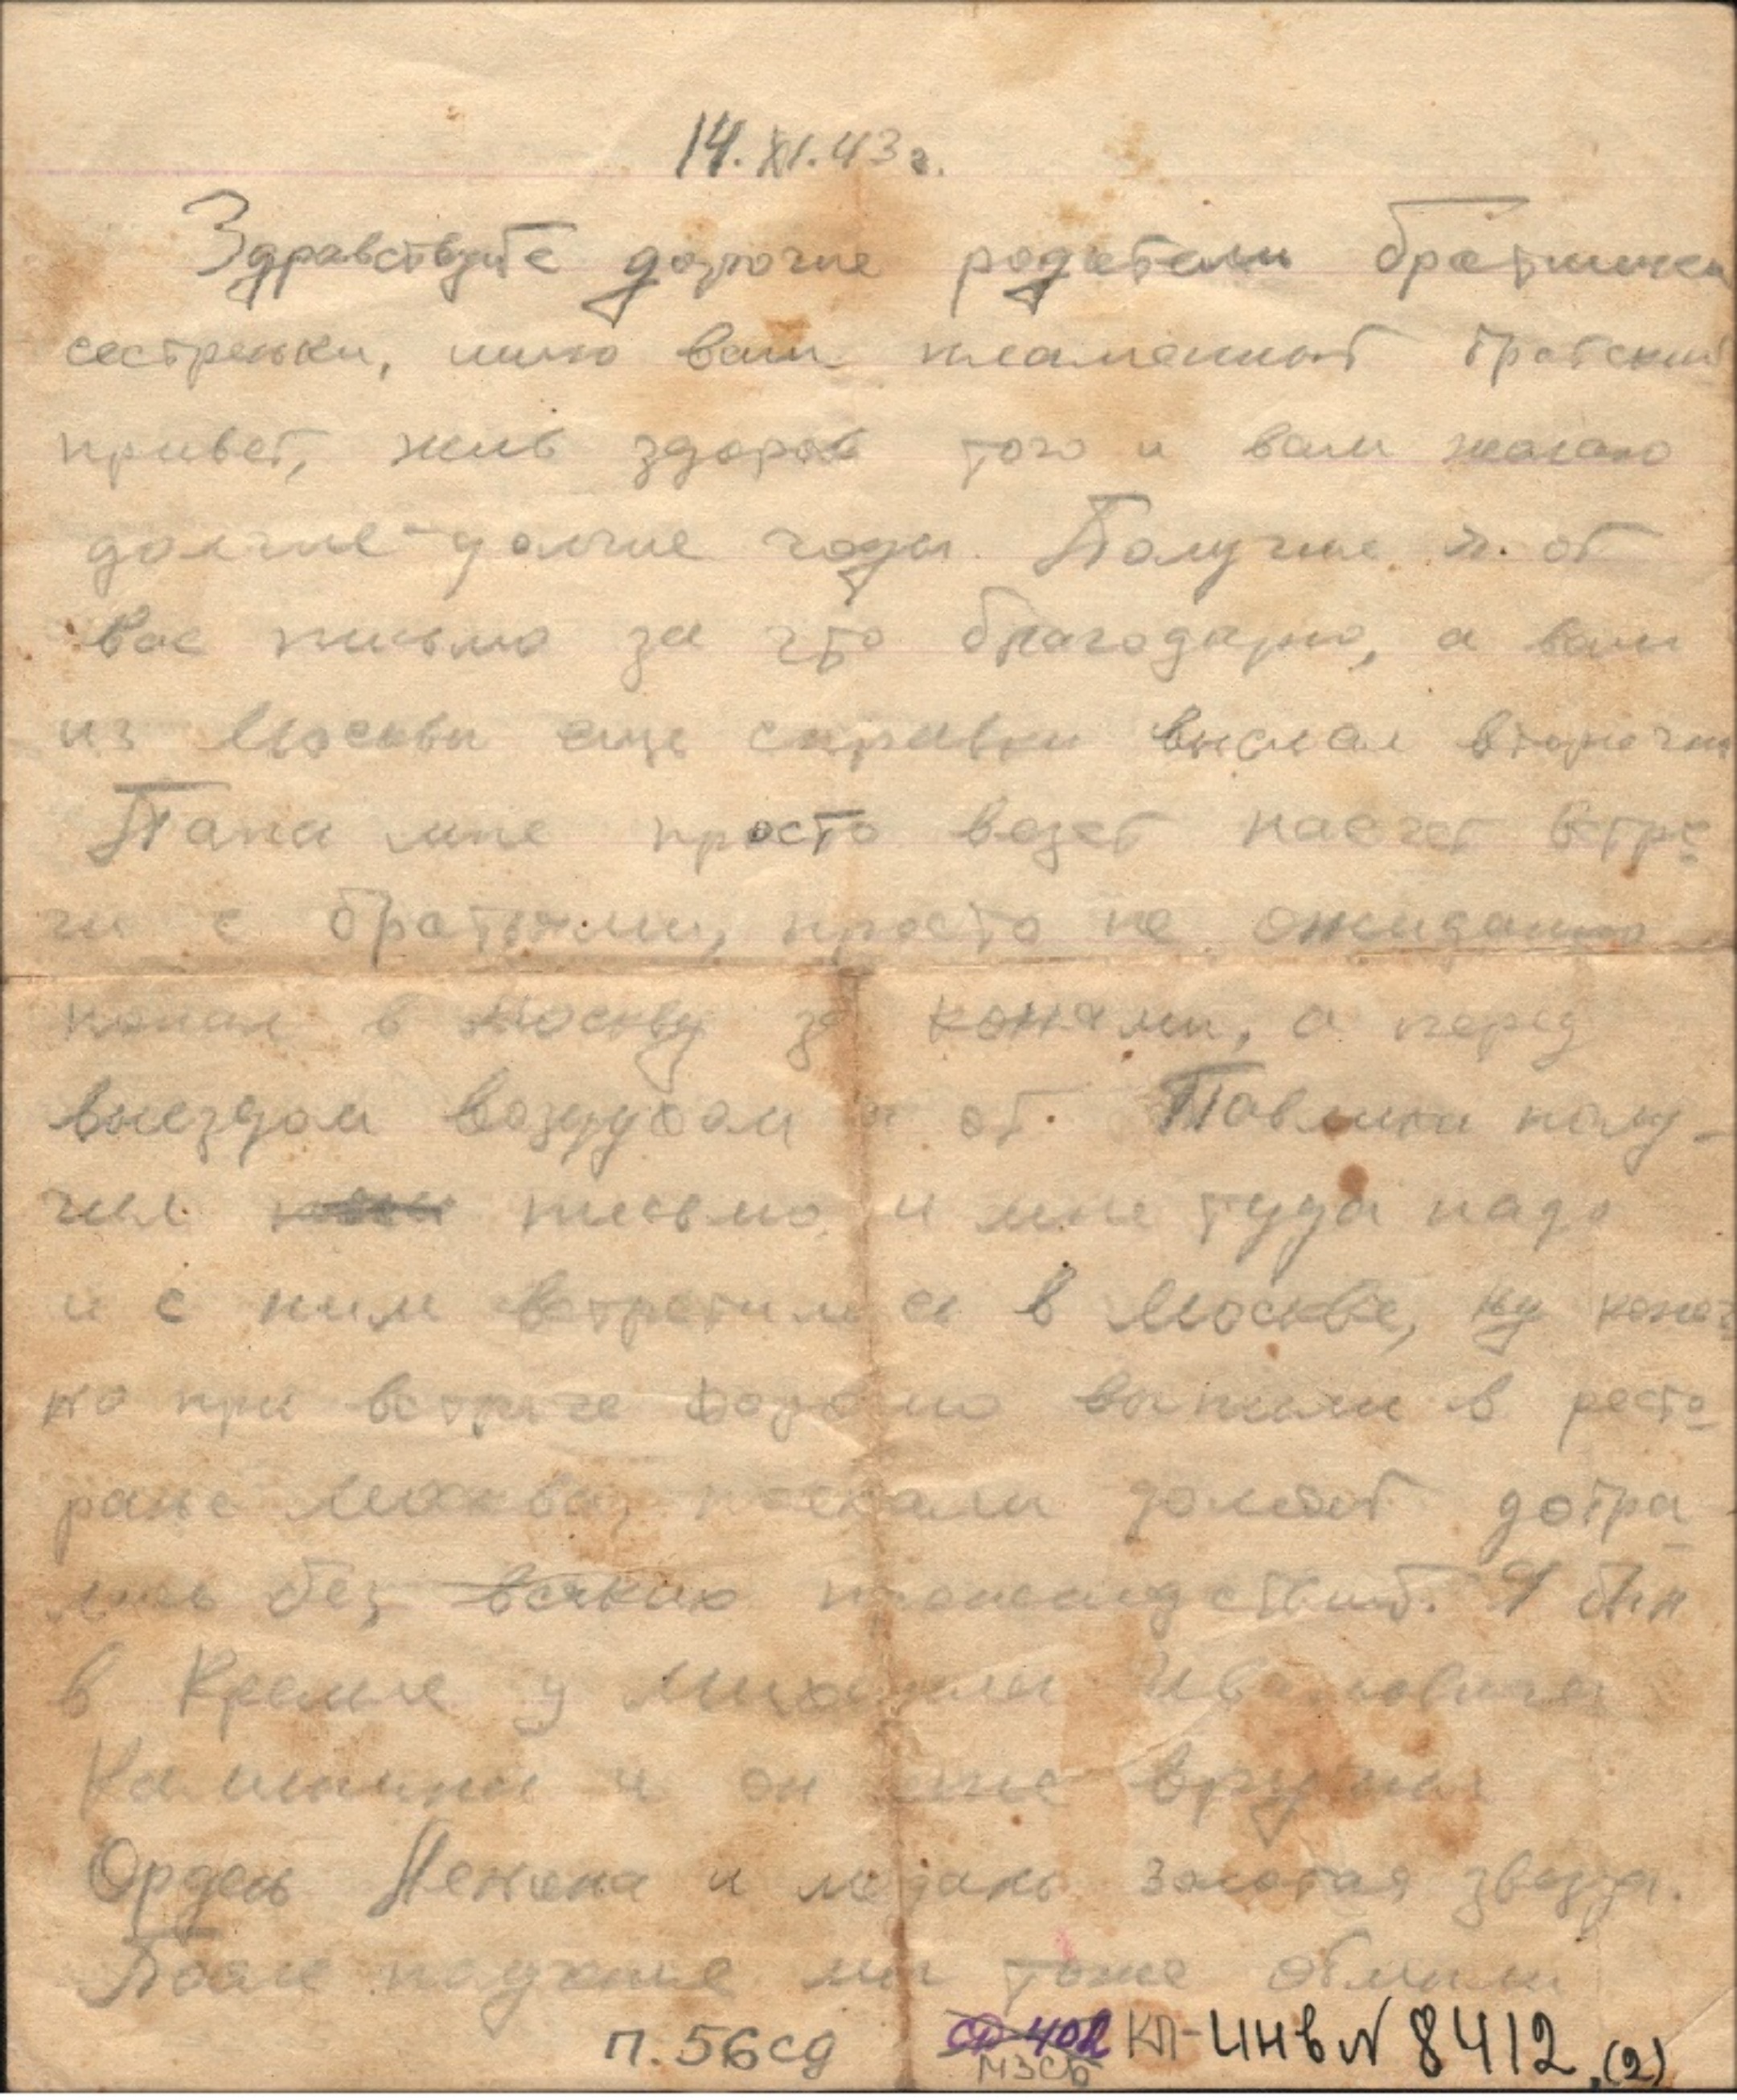 14.XI.43 г.
Здравствуйте дорогие родители братишки
сестреньки, шлю вам пламенный братский
привет, жив здоров того и вам желаю
долгие-долгие годы. Получил я от
вас письмо за что благодарю, а вам
из Москвы еще справки выслал вторично
Папа мне просто везет насчет встре
чи с братьями, просто не ожиданно
попал в Москву за конями, а перед
выездом и от Павлика полу-
чил письмо и мне туда надо
и с ним встретился в Москве, ну конеч
но при встрече выпили в ресто
ране Москва, поехали добра
лись без всяких происшедствий. Я был
в Кремле у Михаила Ивановича
Калинина и он мне вручил
Орден Ленина и медаль золотая звезда.
После получение мы тоже обмыли
п. 56 сд СП 402 КП-инв N 8412 (2)
МЗСБ